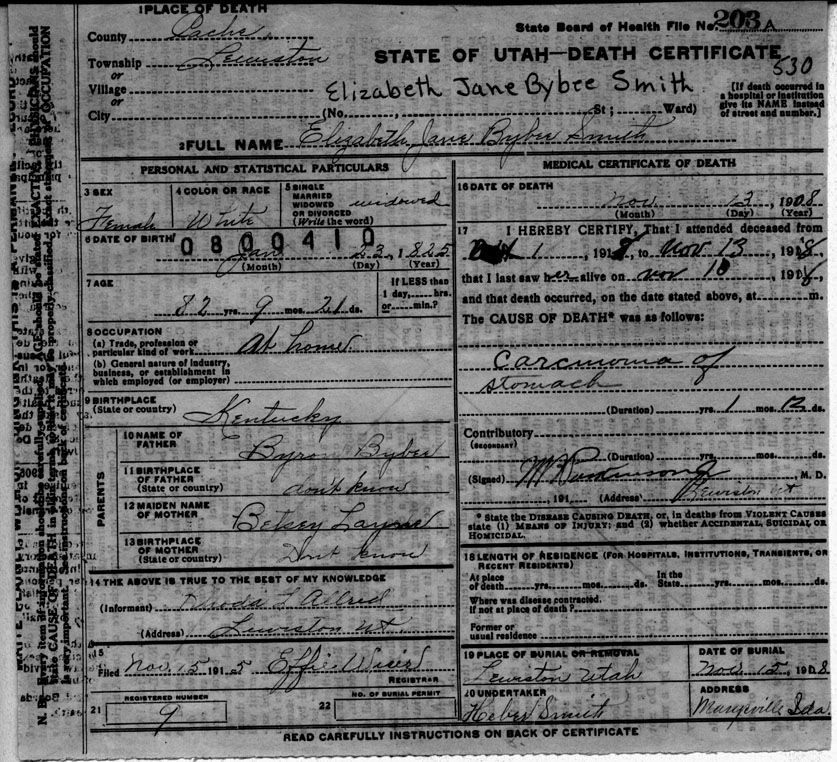 1 PLACE OF DEATH
State Board of Health File No. 203 A
County Cache
STATE OF UTAH—DEATH CERTIFICATE
Township Lewiston
or
530
Village
Elizabeth Jane Bybee Smith
or
[If death occurred in a hospital or institution give its NAME instead of street and number.]
City (No. , St ; Ward)
2 FULL NAME Elizabeth Jane Bybee Smith
PERSONAL AND STATISTICAL PARTICULARS
3 SEX Female
4 COLOR OR RACE White
5 SINGLE MARRIED WIDOWED OR DIVORCED (Write the word) widowed
6 DATE OF BIRTH
0800410
Jan 23, 1825
(Month) (Day) (Year)
7 AGE
82 yrs. 9 mos. 21 ds.
If LESS than 1 day, hrs. or min.?
8 OCCUPATION
(a) Trade, profession or particular kind of work At home
(b) General nature of industry, business, or establishment in which employed (or employer)
9 BIRTHPLACE
(State or country) Kentucky
PARENTS
10 NAME OF FATHER Byron Bybee
11 BIRTHPLACE OF FATHER (State or country) don't know
12 MAIDEN NAME OF MOTHER Betsey
13 BIRTHPLACE OF MOTHER (State or country) Dont know
14 THE ABOVE IS TRUE TO THE BEST OF MY KNOWLEDGE
(Informant) Allred
(Address) Lewiston Ut
15
Filed Nov 15 191 5 Effie
REGISTRAR
21 REGISTERED NUMBER 9
22 NO. OF BURIAL PERMIT
MEDICAL CERTIFICATE OF DEATH
16 DATE OF DEATH
Nov 13, 1908
(Month) (Day) (Year)
17 I HEREBY CERTIFY, That I attended deceased from
1, 191 8, to Nov 13, 191 8
that I last saw her alive on Nov 10, 191 8
and that death occurred, on the date stated above, at m.
The CAUSE OF DEATH* was as follows:
Carcinoma of
stomach
(Duration) yrs. 1 mos. 12 ds.
Contributory
(SECONDARY)
(Duration) yrs. mos. ds.
(Signed) M. D.
, 191 (Address) Lewiston Ut
* State the DISEASE CAUSING DEATH, or, in deaths from VIOLENT CAUSES
state (1) MEANS OF INJURY; and (2) whether ACCIDENTAL, SUICIDAL OR
HOMICIDAL.
18 LENGTH OF RESIDENCE (FOR HOSPITALS, INSTITUTIONS, TRANSIENTS, OR
RECENT RESIDENTS)
At place of death yrs. mos. ds. In the State yrs. mos. ds.
Where was disease contracted,
If not at place of death?
Former or
usual residence
19 PLACE OF BURIAL OR REMOVAL
Lewiston Utah
DATE OF BURIAL
Nov 15, 1908
20 UNDERTAKER
Heber Smith
ADDRESS
Marysville Ida
READ CAREFULLY INSTRUCTIONS ON BACK OF CERTIFICATE